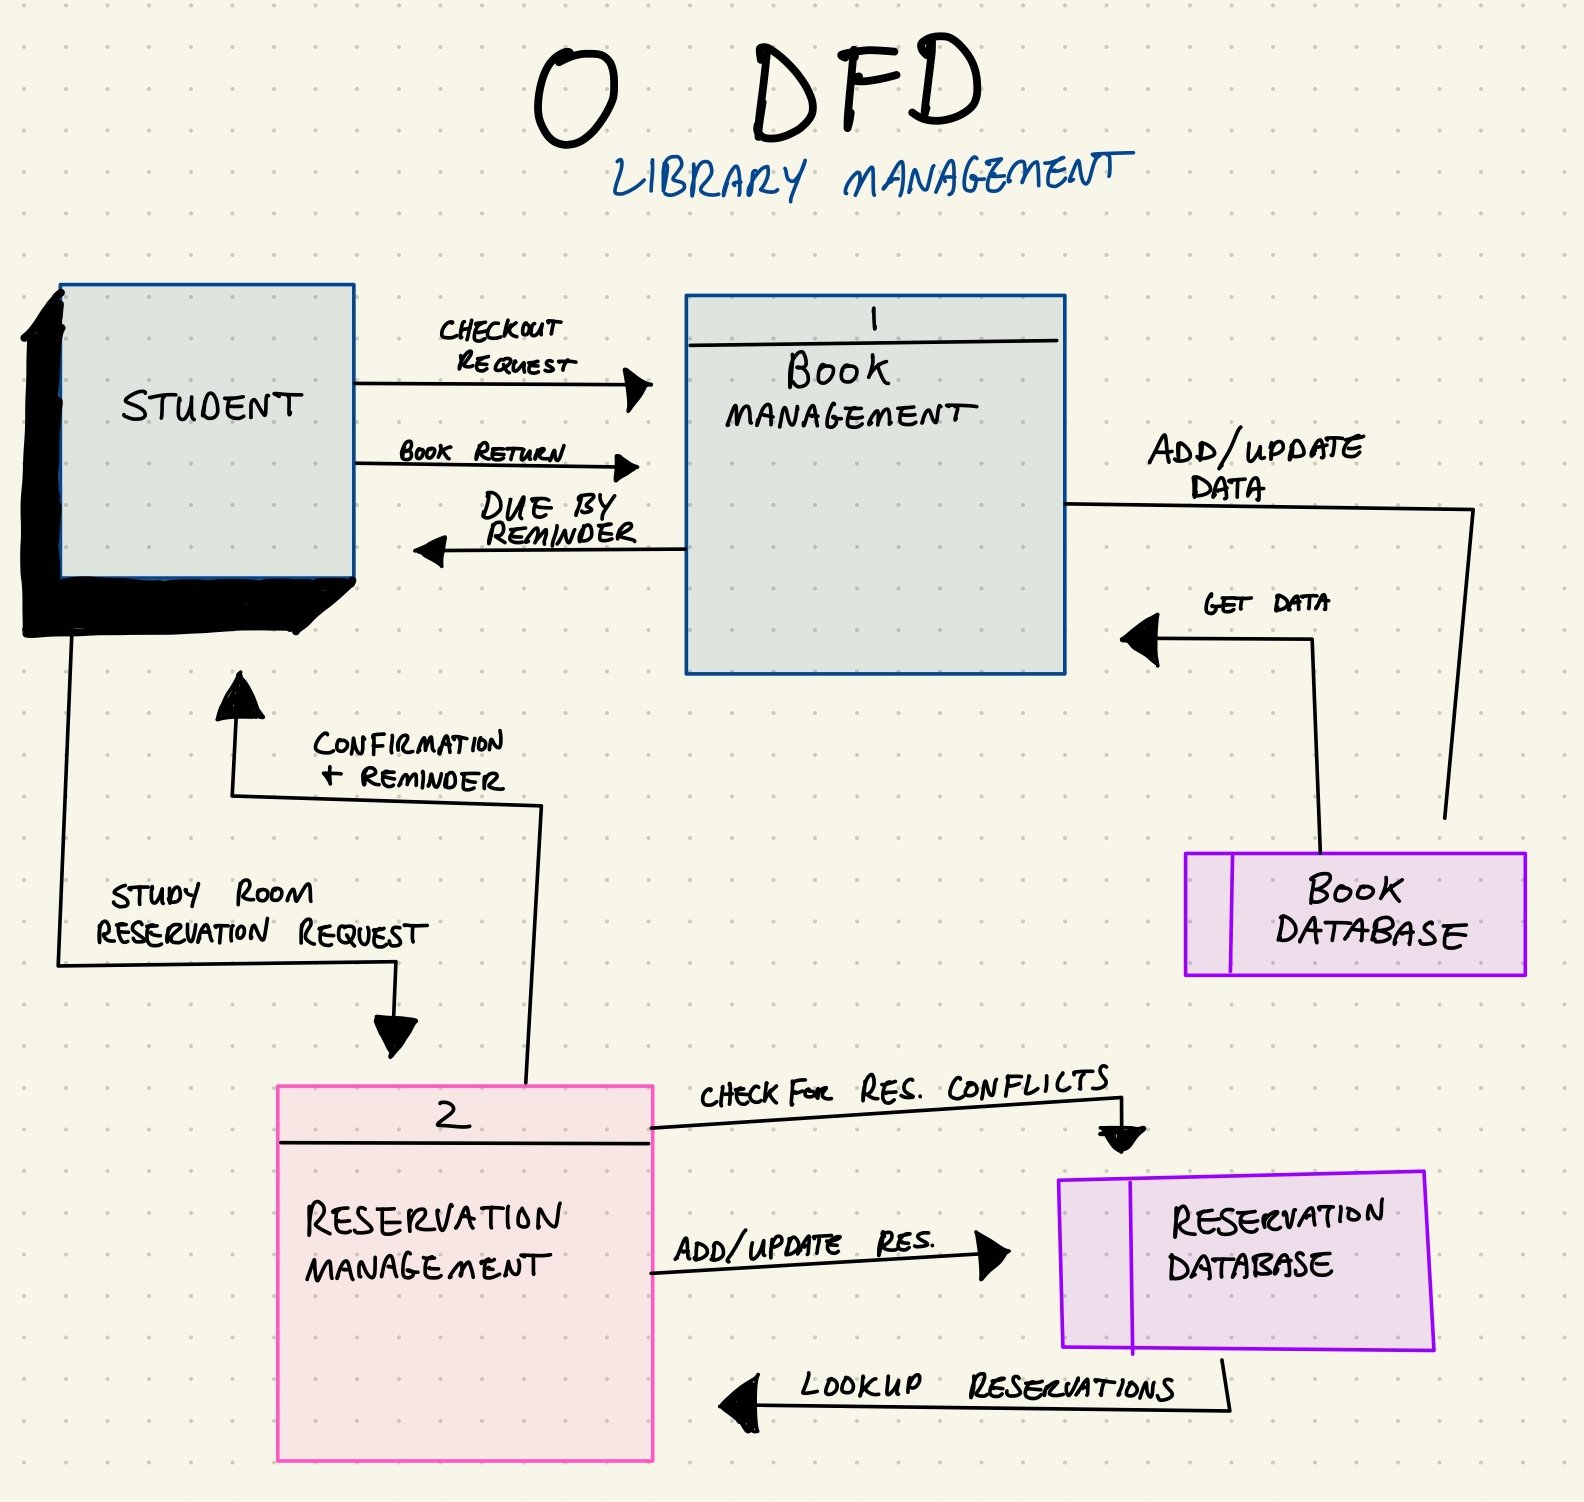 O DFD
LIBRARY MANAGEMENT
STUDENT
CHECKOUT
REQUEST
BOOK RETURN
DUE BY
REMINDER
1
BOOK
MANAGEMENT
ADD/UPDATE
DATA
GET DATA
BOOK
DATABASE
CONFIRMATION
+ REMINDER
STUDY ROOM
RESERVATION REQUEST
2
RESERVATION
MANAGEMENT
CHECK FOR RES. CONFLICTS
ADD/UPDATE RES.
LOOKUP RESERVATIONS
RESERVATION
DATABASE